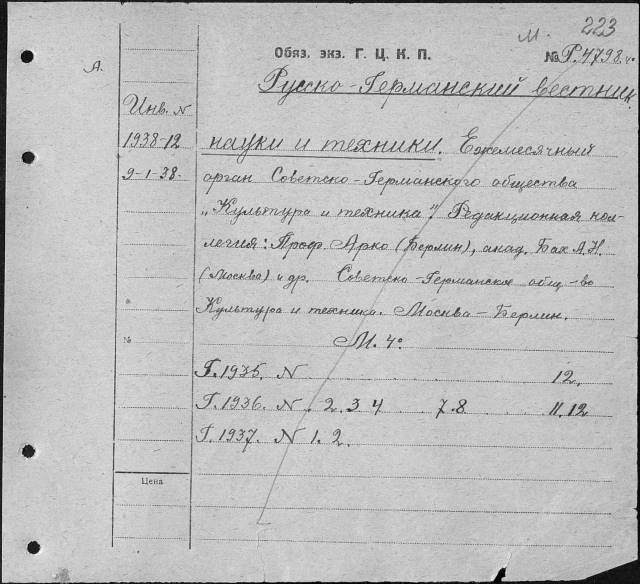 М. 223
Обяз. экз. Г. Ц. К. П. № Р.4798.
А.
Русско-Германский вестник
Инв. N
1938-12 науки и техники. Ежемесячный
9-1-38. орган Советско-Германского общества
„Культура и техника". Редакционная кол-
легия: Проф. Арко (Берлин), акад. Бах А.Н.
(Москва) и др. Советско-Германское общ-во
Культура и техника. Москва-Берлин.
№ М. 4º
Г.1935. N 12.
Г.1936. N. 2. 3 4 7. 8. 11. 12
Г.1937. N 1. 2.
Цена